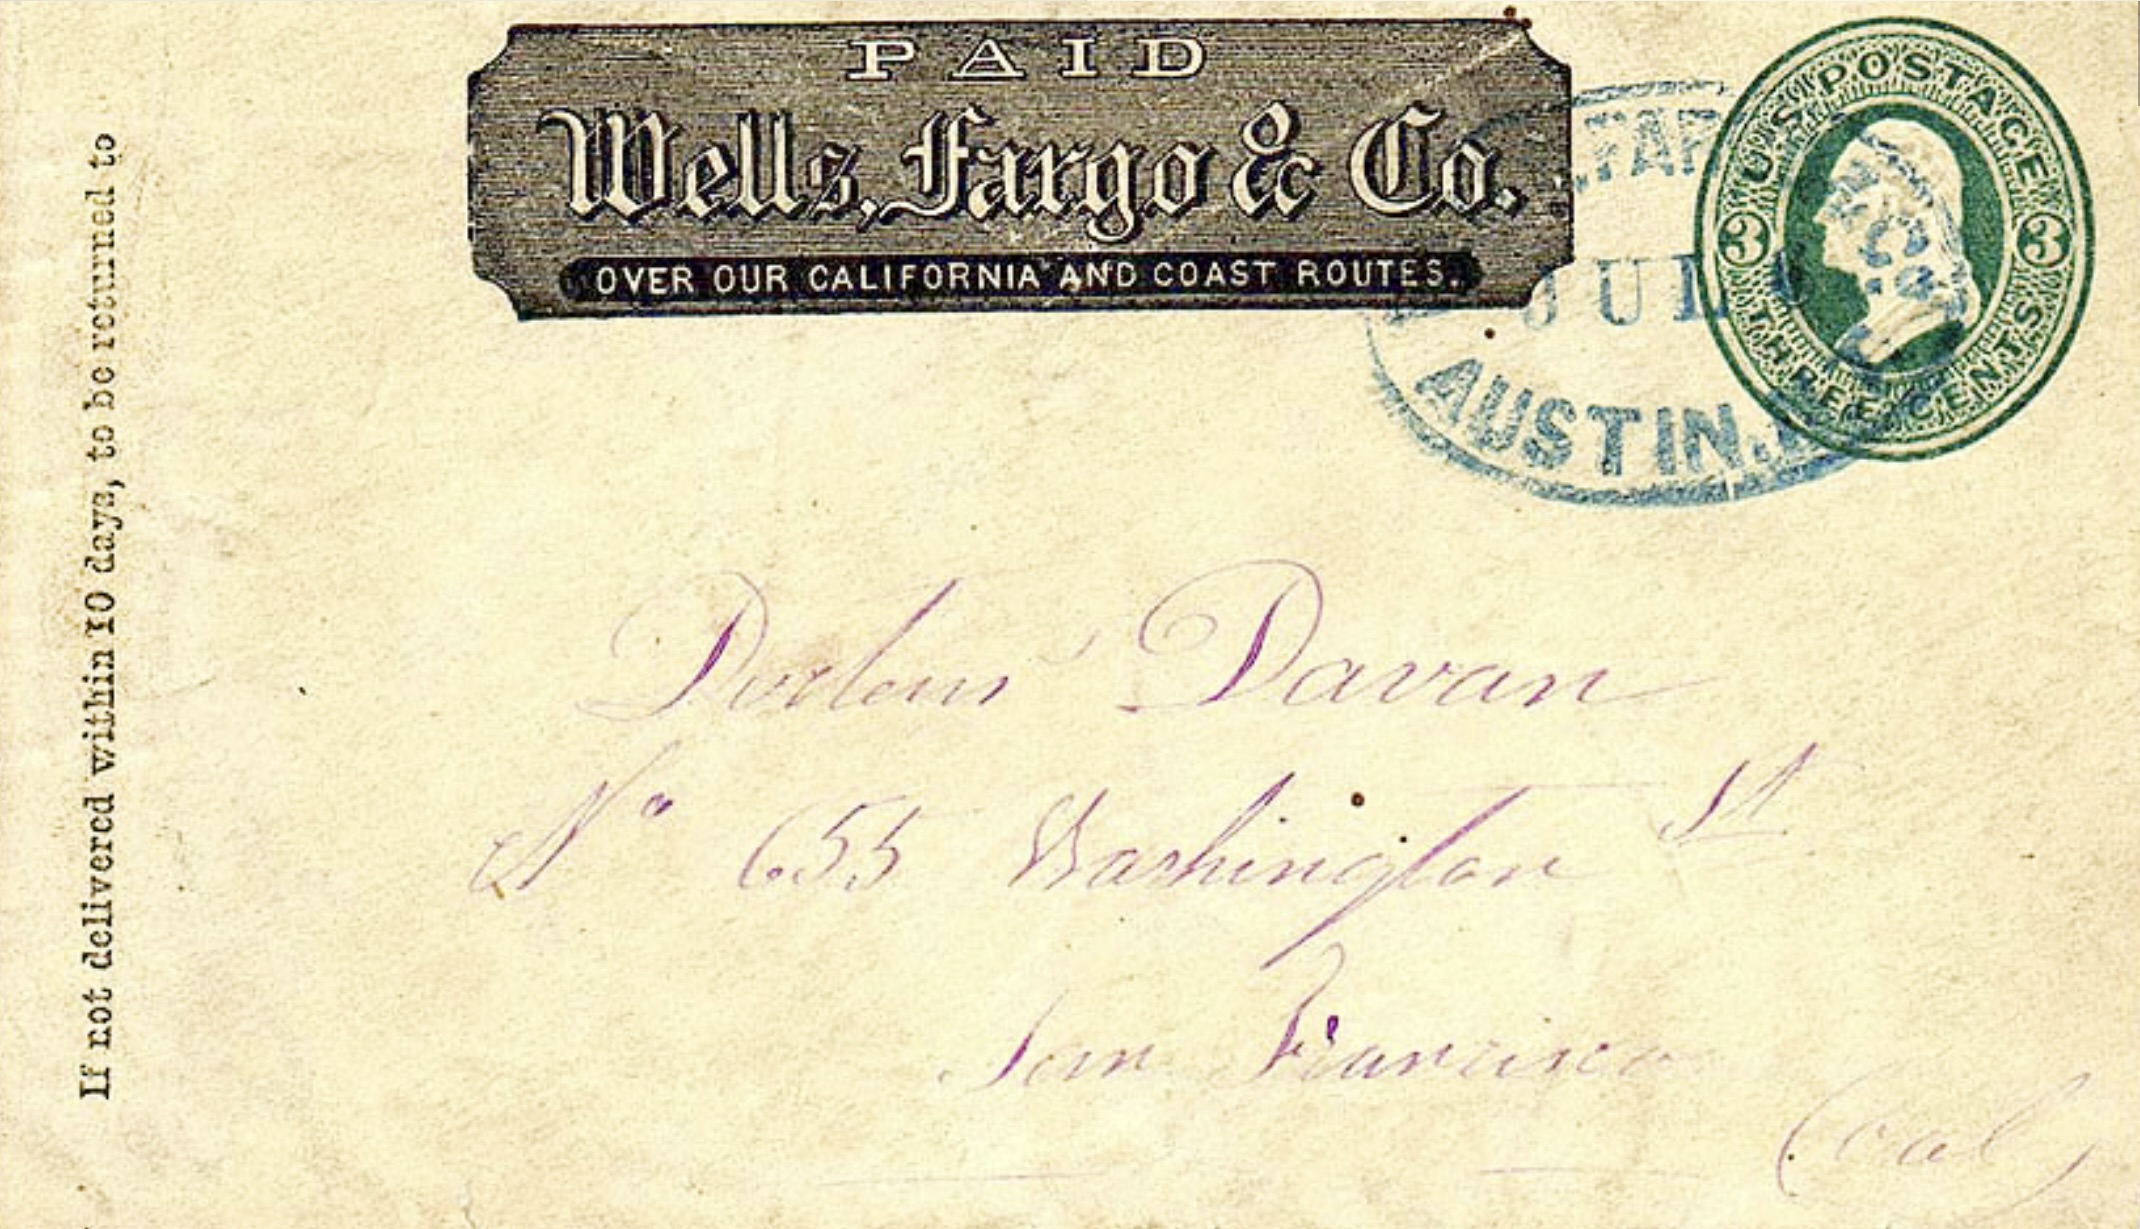 PAID
Wells, Fargo & Co.
OVER OUR CALIFORNIA AND COAST ROUTES.
U.S. POSTAGE
3 3
THREE CENTS
FAR & CO.
JUL
AUSTIN.
If not delivered within 10 days, to be returned to
Davan
No 655 Washington St
San Francisco
(Cal)